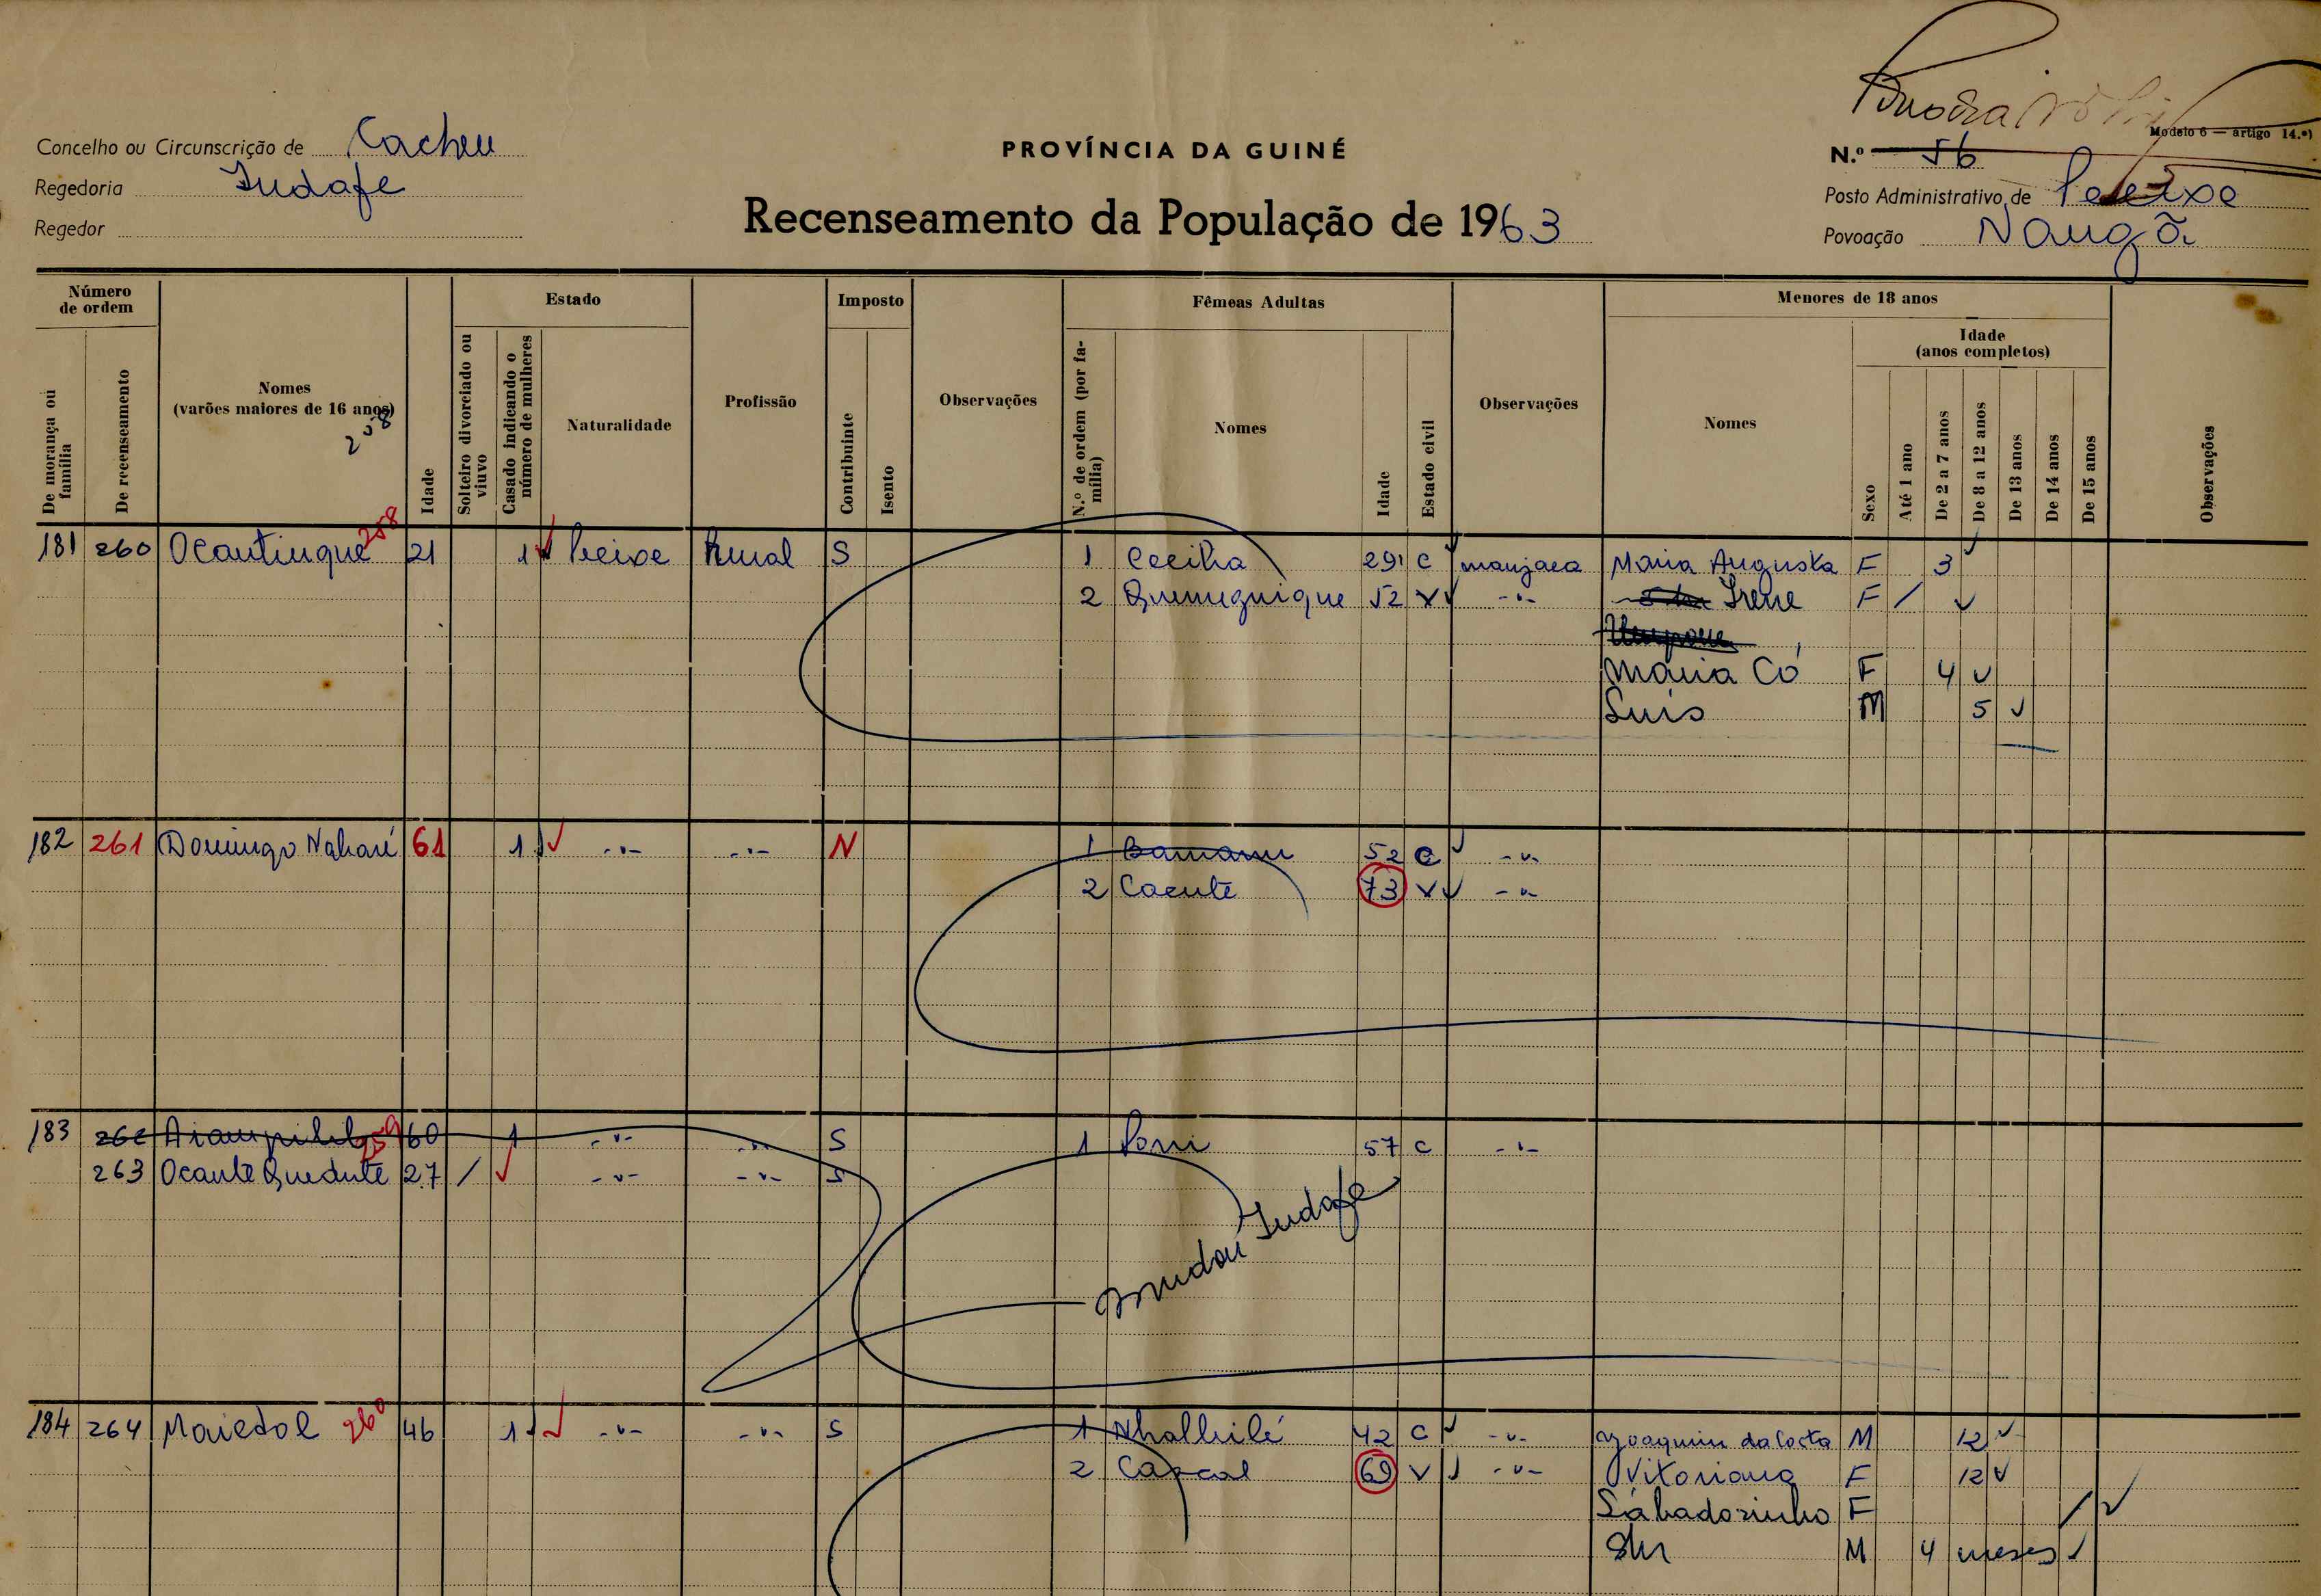 Modelo 6 — artigo 14.º)
Concelho ou Circunscrição de Cacheu
PROVÍNCIA DA GUINÉ
N.º 56
Regedoria Indafe
Recenseamento da População de 1963
Posto Administrativo de
Regedor
Povoação Naugã
Número de ordem
Estado
Imposto
Fêmeas Adultas
Menores de 18 anos
Idade
(anos completos)
De morança ou família
De recenseamento
Nomes
(varões maiores de 16 anos)
258
Idade
Solteiro divorciado ou viuvo
Casado indicando o número de mulheres
Naturalidade
Profissão
Contribuinte
Isento
Observações
N.º de ordem (por família)
Nomes
Idade
Estado civil
Observações
Nomes
Sexo
Até 1 ano
De 2 a 7 anos
De 8 a 12 anos
De 13 anos
De 14 anos
De 15 anos
Observações
181 260 Ocantinque 258 21 1 Peixe Rural S 1 Cecilia 29 C manjaca Maria Augusta F 3
2 52 V -"- Irene F /
Maria Có F 4
Luis M 5
182 261 Domingo Naharé 61 1 -"- -"- N 1 52 C -"-
2 Caente 73 V -"-
183 262 259 60 1 -"- -"- S 1 Poni 57 C -"-
263 Ocante Quedute 27 / -"- -"- S
mudou Indafe
184 264 Maiedol 260 46 1 -"- -"- S 1 Nhalhilé 42 C -"- Joaquim da Costa M 12
2 Capcal 69 V -"- Vitoriana F 12
Sábadozinho F /
M 4 meses